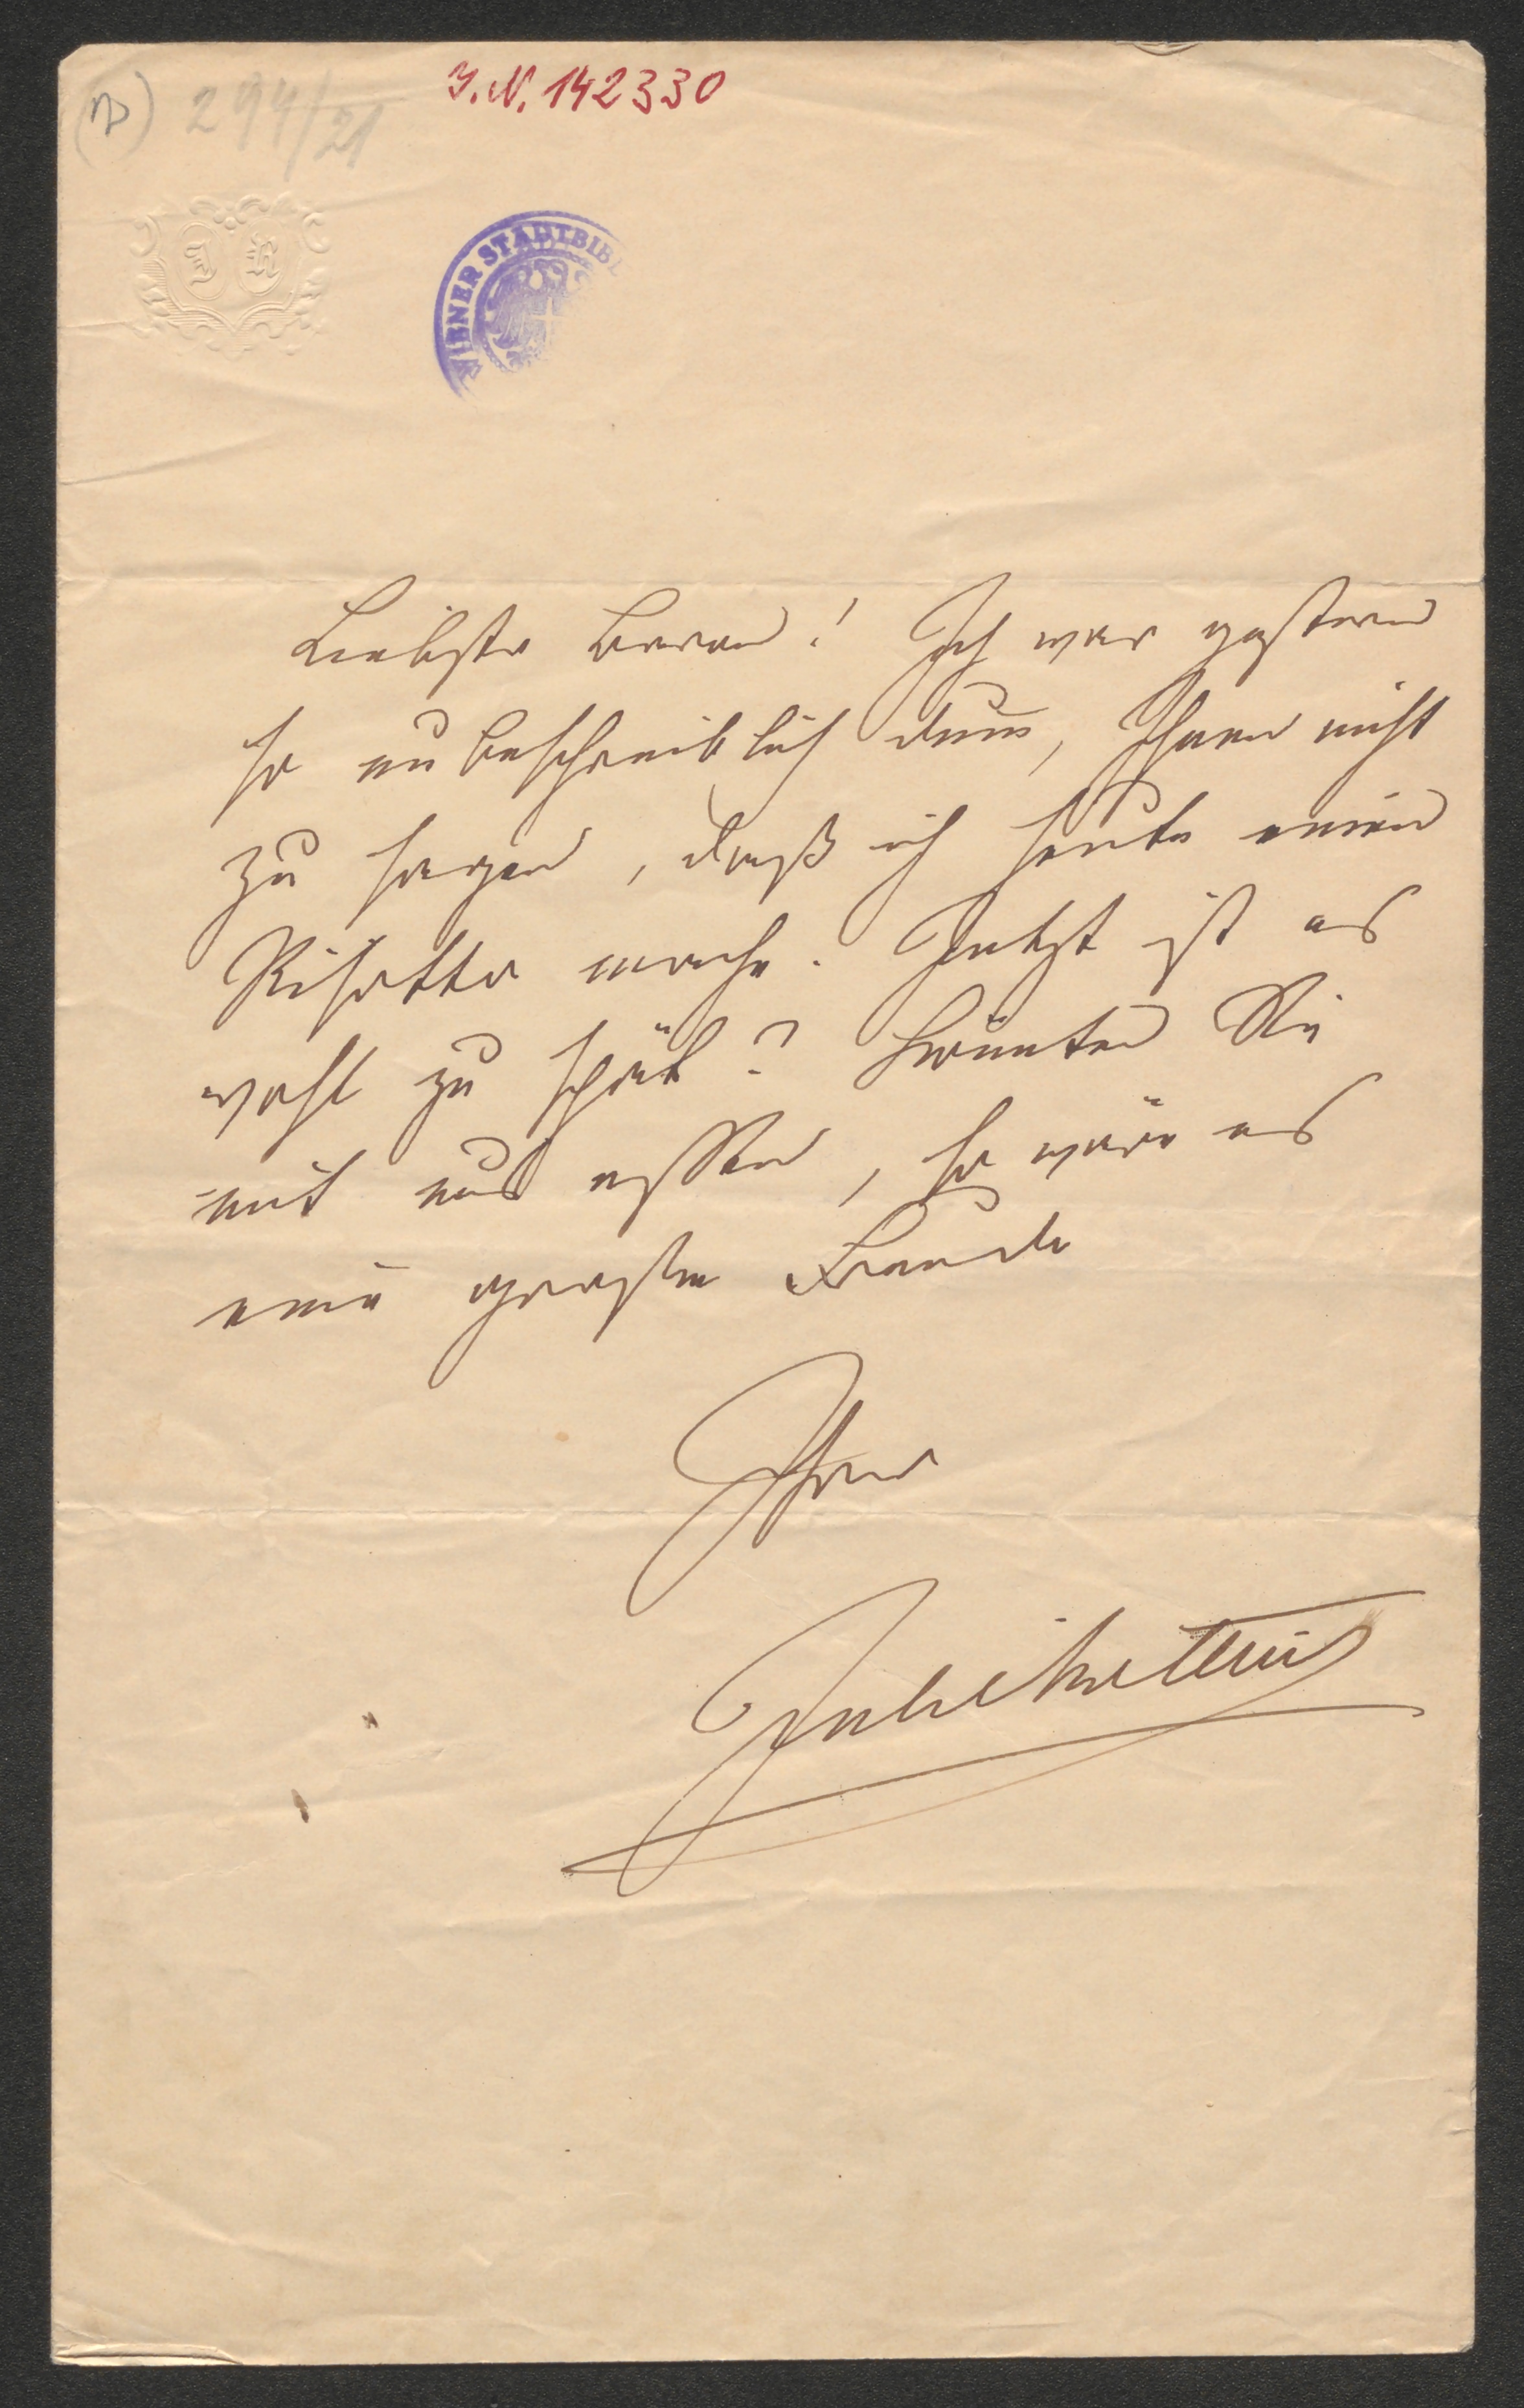 294/21
J.N. 142330
J R
WIENER STADTBIBL
Liebste Baronin! Ich war gestern
so unbeschreiblich dum̅, Ihnen nicht
zu sagen, daß ich heute einen
Risotto mache. Jetzt ist es
wohl zu spät? Könnten Sie
mit uns essen, so wäre es
eine große Freude
Ihrer